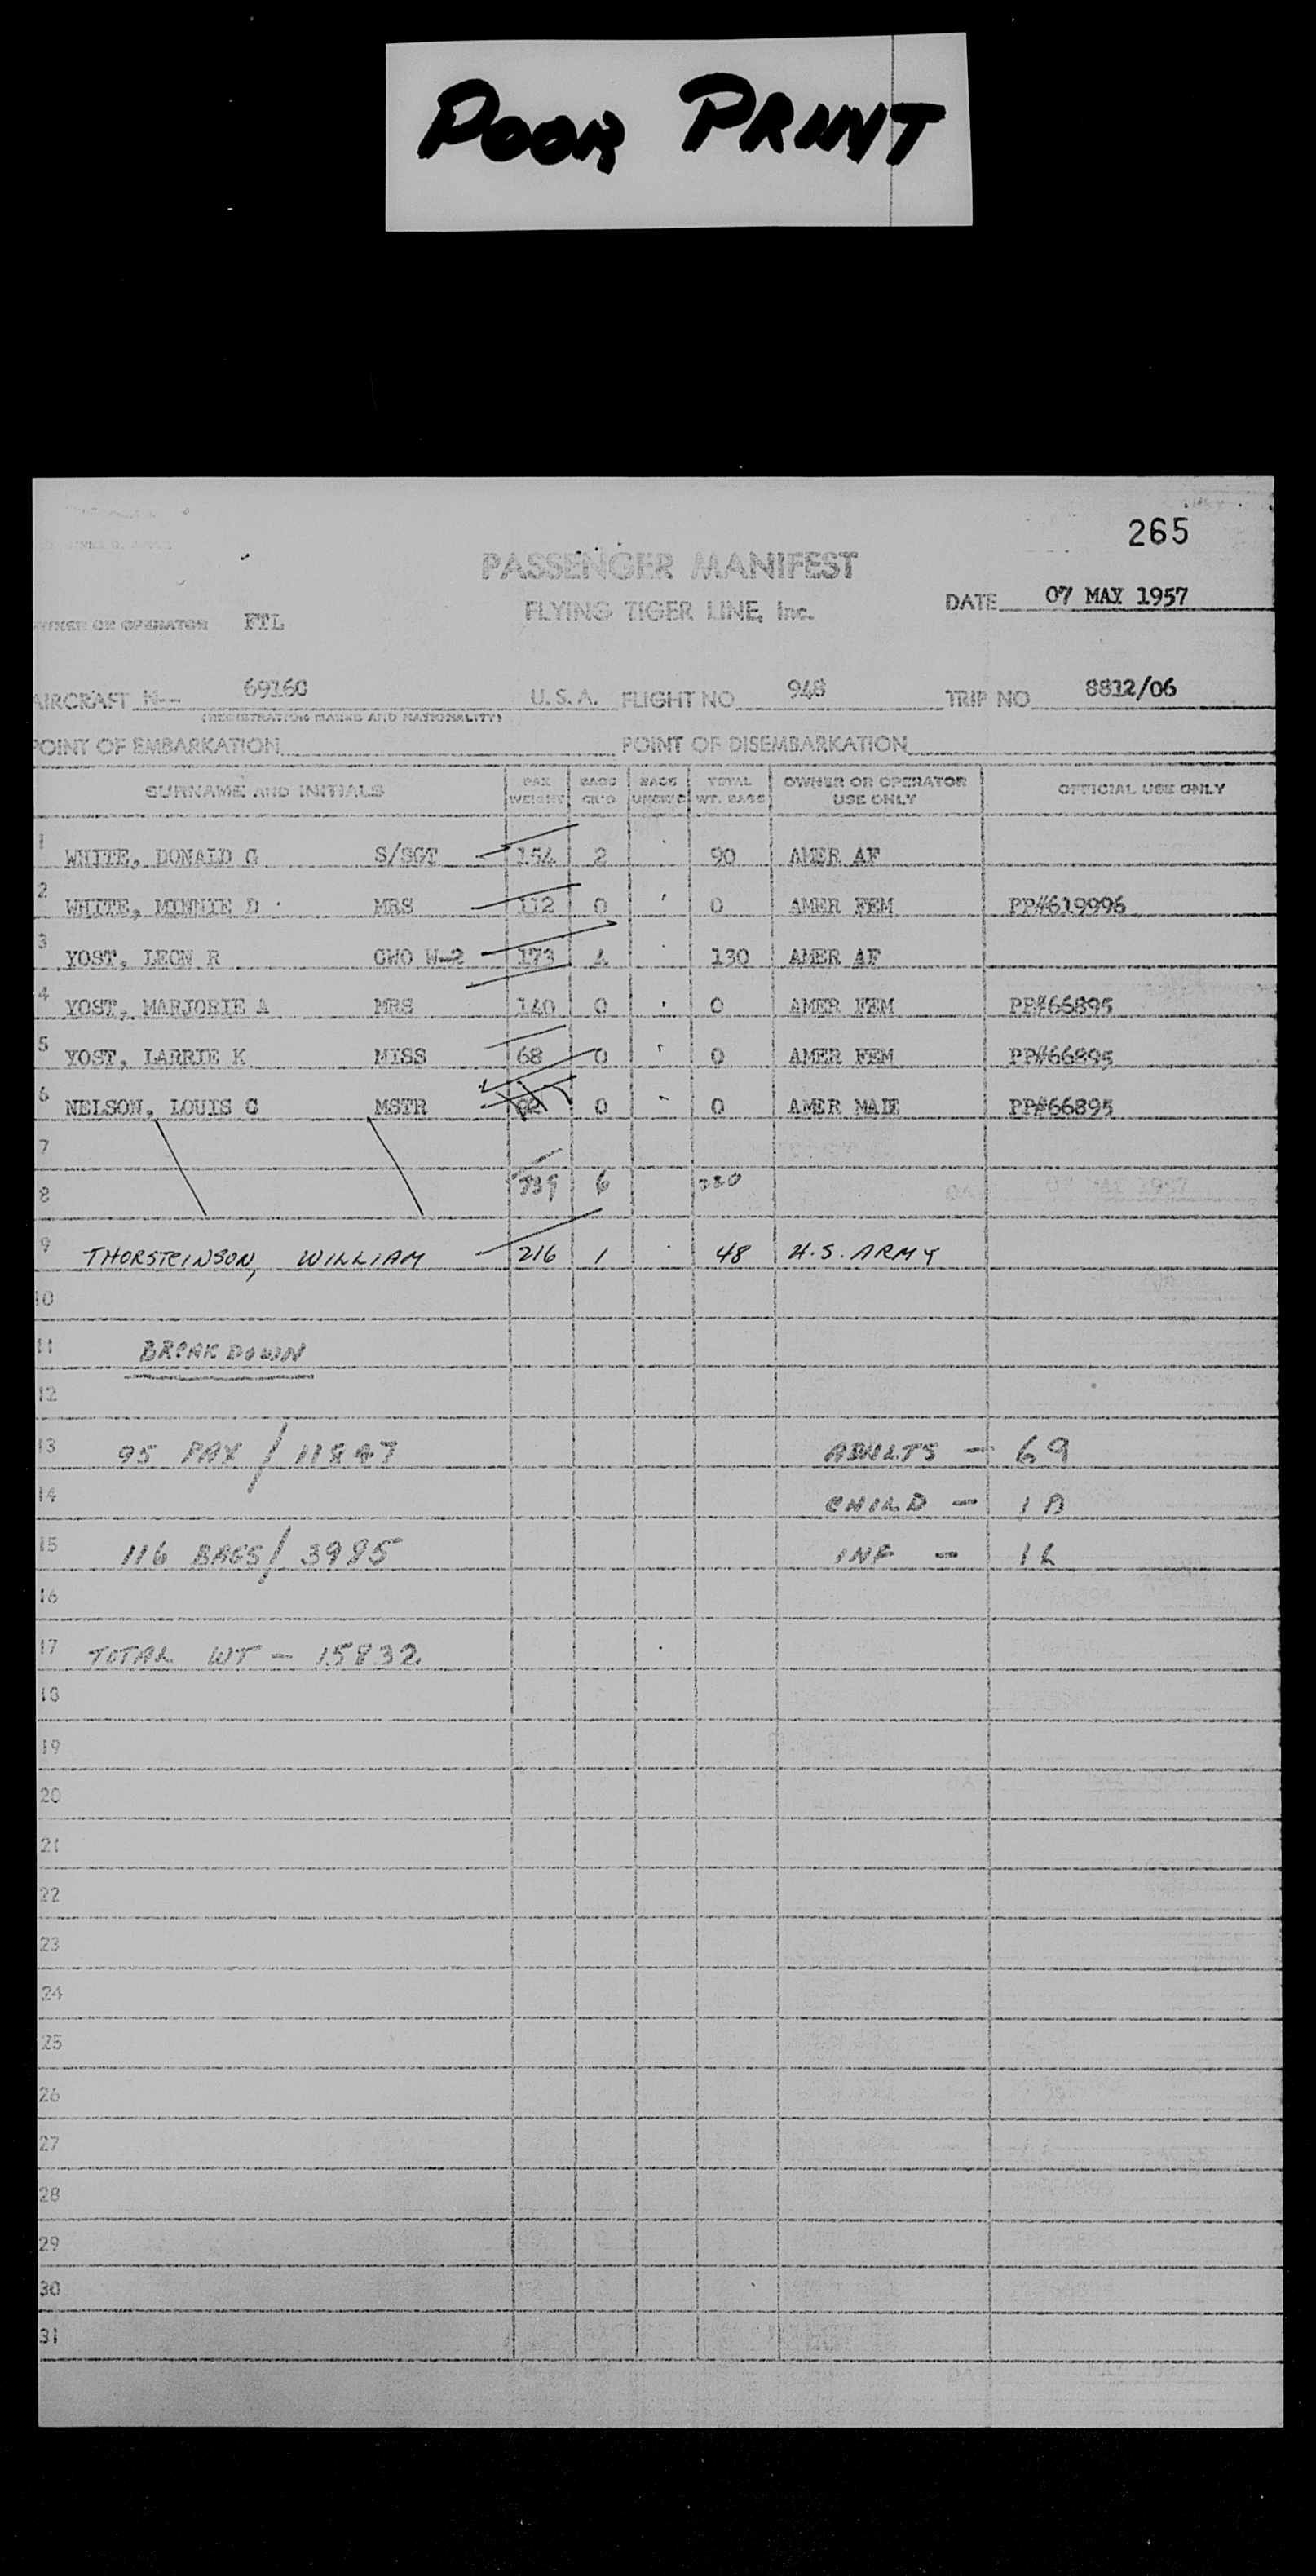 POOR PRINT
265
PASSENGER MANIFEST
FLYING TIGER LINE, Inc.
DATE 07 MAY 1957
OWNER OR OPERATOR FTL
AIRCRAFT N-- 6916C U.S.A. FLIGHT NO 948 TRIP NO 8812/06
(REGISTRATION MARKS AND NATIONALITY)
POINT OF EMBARKATION POINT OF DISEMBARKATION
SURNAME AND INITIALS PAX WEIGHT BAGS CK'D BAGS UNCK'D TOTAL WT. BAGS OWNER OR OPERATOR USE ONLY OFFICIAL USE ONLY
1 WHITE, DONALD G S/SGT 154 2 90 AMER AF
2 WHITE, MINNIE D MRS 112 0 0 AMER FEM PP#619996
3 YOST, LEON R CWO W-2 173 4 130 AMER AF
4 YOST, MARJORIE A MRS 140 0 0 AMER FEM PP#66895
5 YOST, LARRIE K MISS 68 0 0 AMER FEM PP#66895
6 NELSON, LOUIS C MSTR 0 0 AMER MALE PP#66895
7
8 739 6 220
9 THORSTEINSON, WILLIAM 216 1 48 U.S. ARMY
10
11 BREAKDOWN
12
13 95 PAX / 11847 ADULTS - 69
14 CHILD - 10
15 116 BAGS / 3985 INF - 16
16
17 TOTAL WT - 15832
18
19
20
21
22
23
24
25
26
27
28
29
30
31